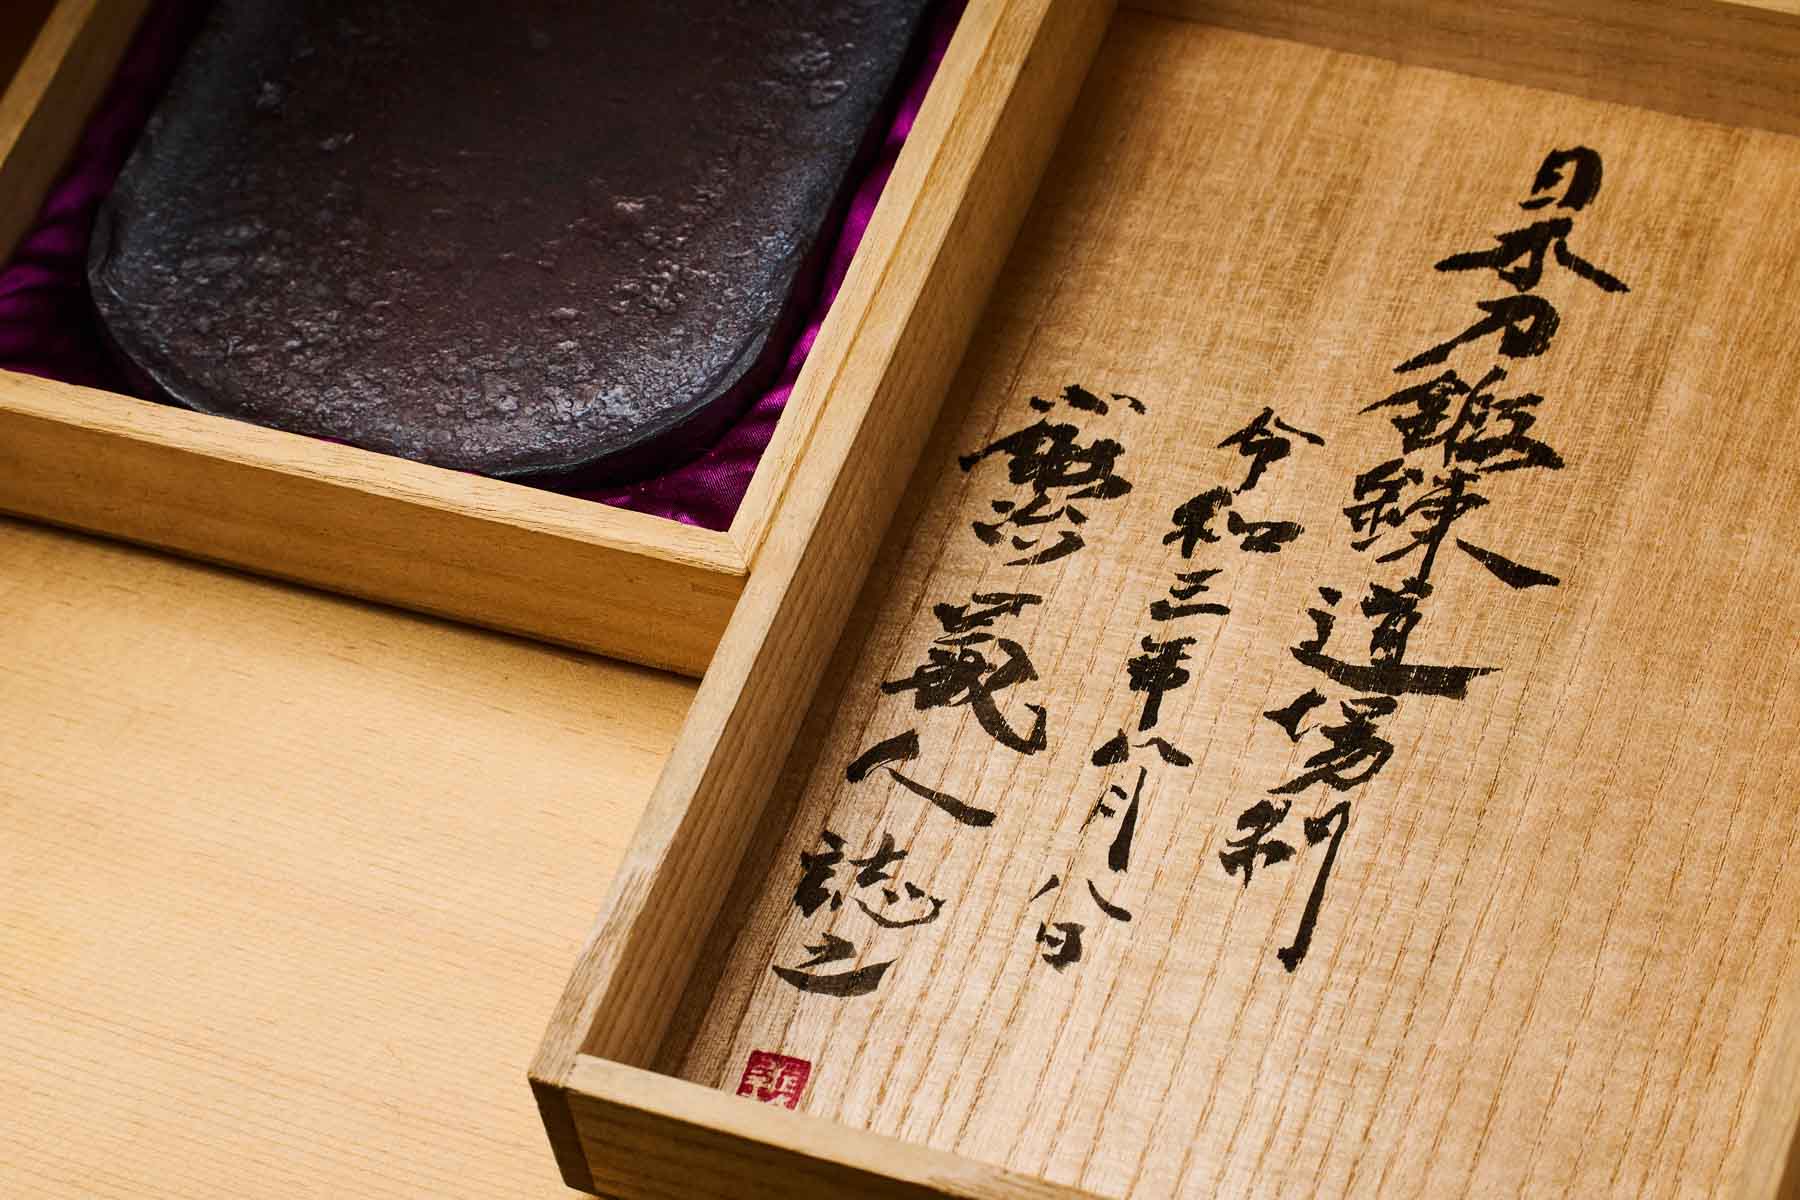 日本刀鍛錬道場制
令和三年八月八日
鍛冶義人誌之